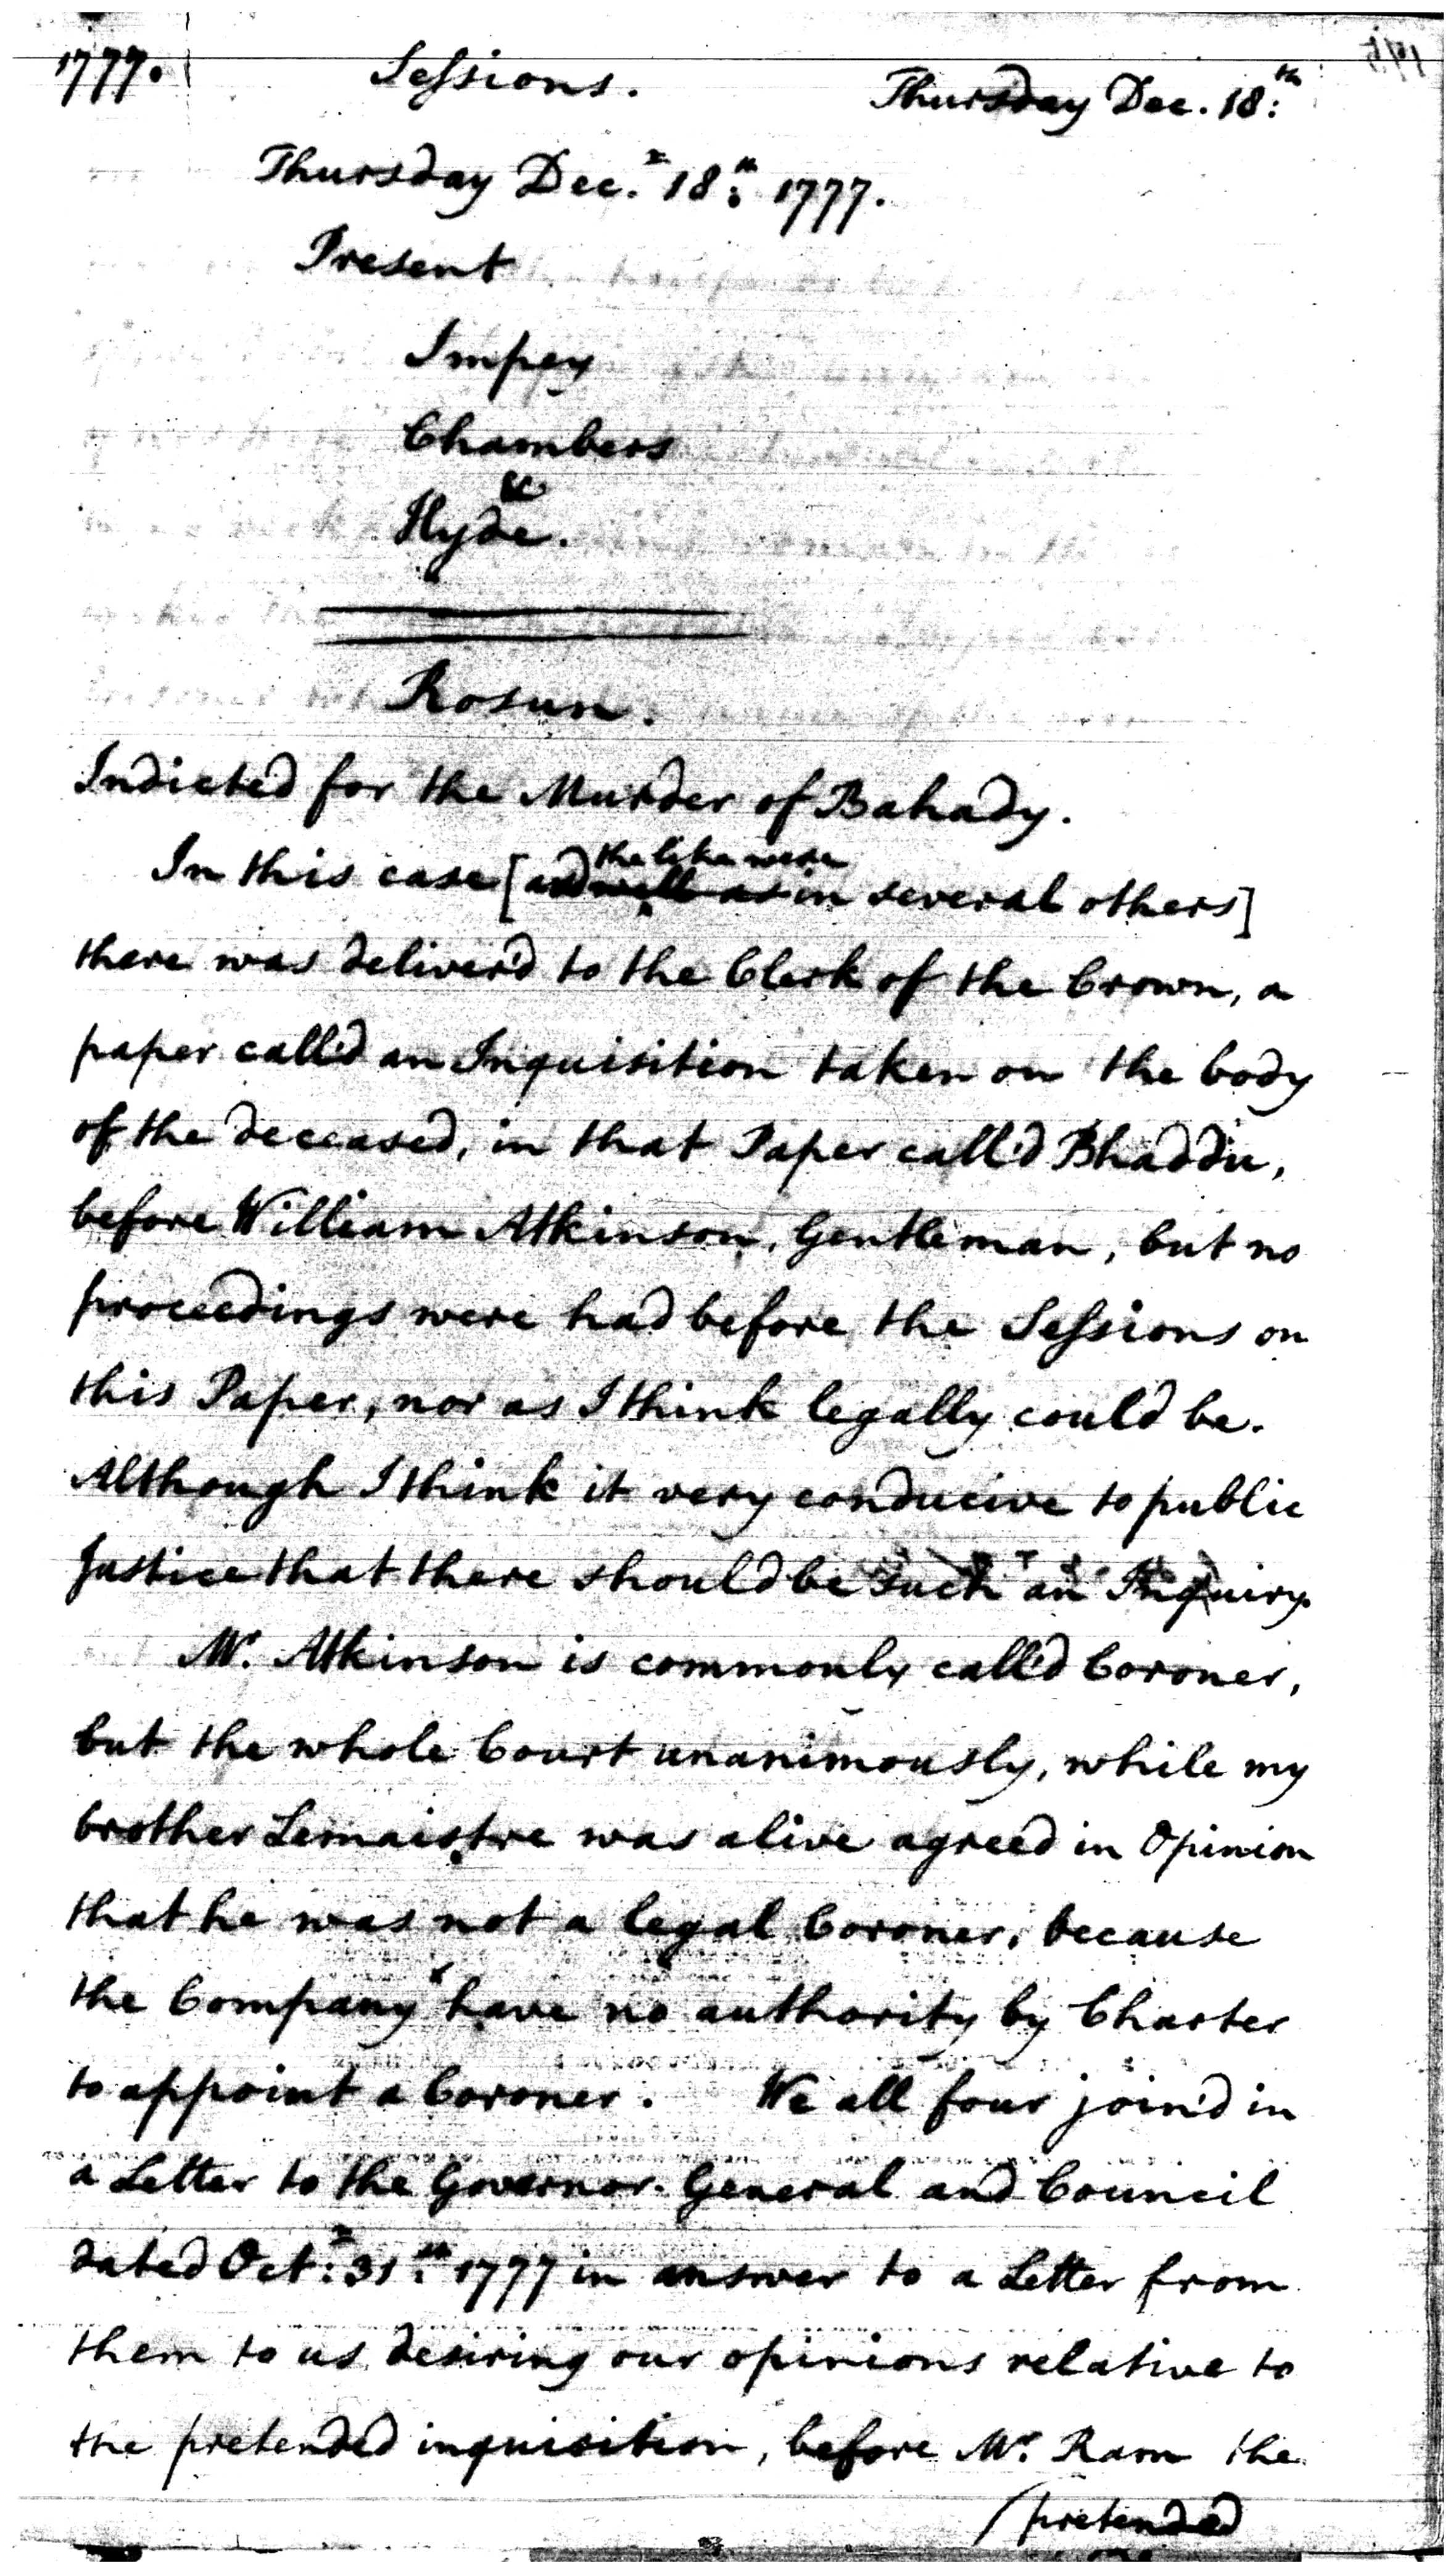 1777. Sessions. Thursday Dec. 18:th
Thursday Dec.r 18:th 1777.
Present
Impey
Chambers
&
Hyde.
Rosun.
Indicted for the Murder of Bahady.
the like were
In this case [and well as in several others]
there was deliver'd to the Clerk of the Crown, a
paper call'd an Inquisition taken on the body
of the deceased, in that Paper call'd Bhaddu,
before William Atkinson, Gentleman, but no
proceedings were had before the Sessions on
this Paper, nor as I think legally could be.
Although I think it very conducive to public
Justice that there should be such an Inquiry.
Mr. Atkinson is commonly call'd Coroner,
but the whole Court unanimously, while my
brother Lemaistre was alive agreed in Opinion
that he was not a legal Coroner, because
the Company have no authority by Charter
to appoint a Coroner. We all four join'd in
a Letter to the Governor-General and Council
dated Oct:r 31:st 1777 in answer to a Letter from
them to us desiring our opinions relative to
the pretended inquisition, before Mr. Ram the
/pretended